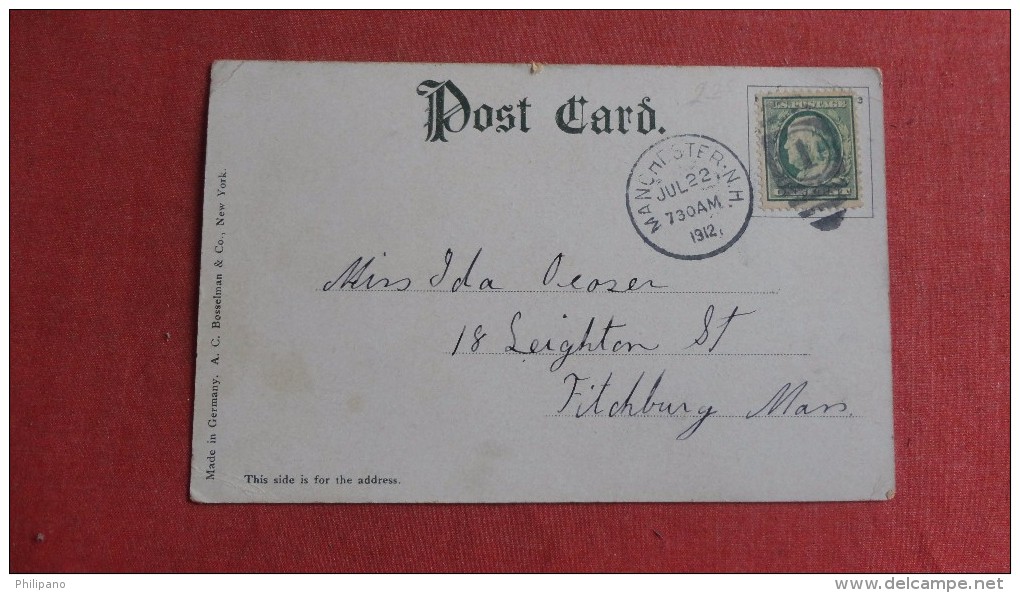 Post Card.
U.S. POSTAGE
MANCHESTER, N.H.
JUL 22
7 30 AM
1912
Miss Ida
18 Leighton St
Fitchburg Mass.
Made in Germany. A. C. Bosselman & Co., New York.
This side is for the address.
Philipano
www.delcampe.net